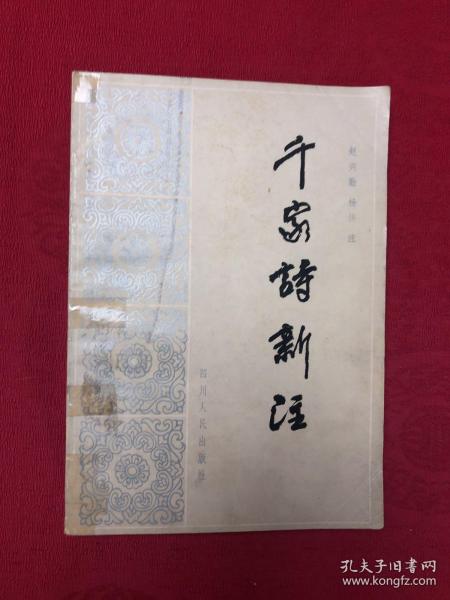 千家詩新注
赵兴勤 杨侠 注
四川人民出版社
孔夫子旧书网
www.kongfz.com